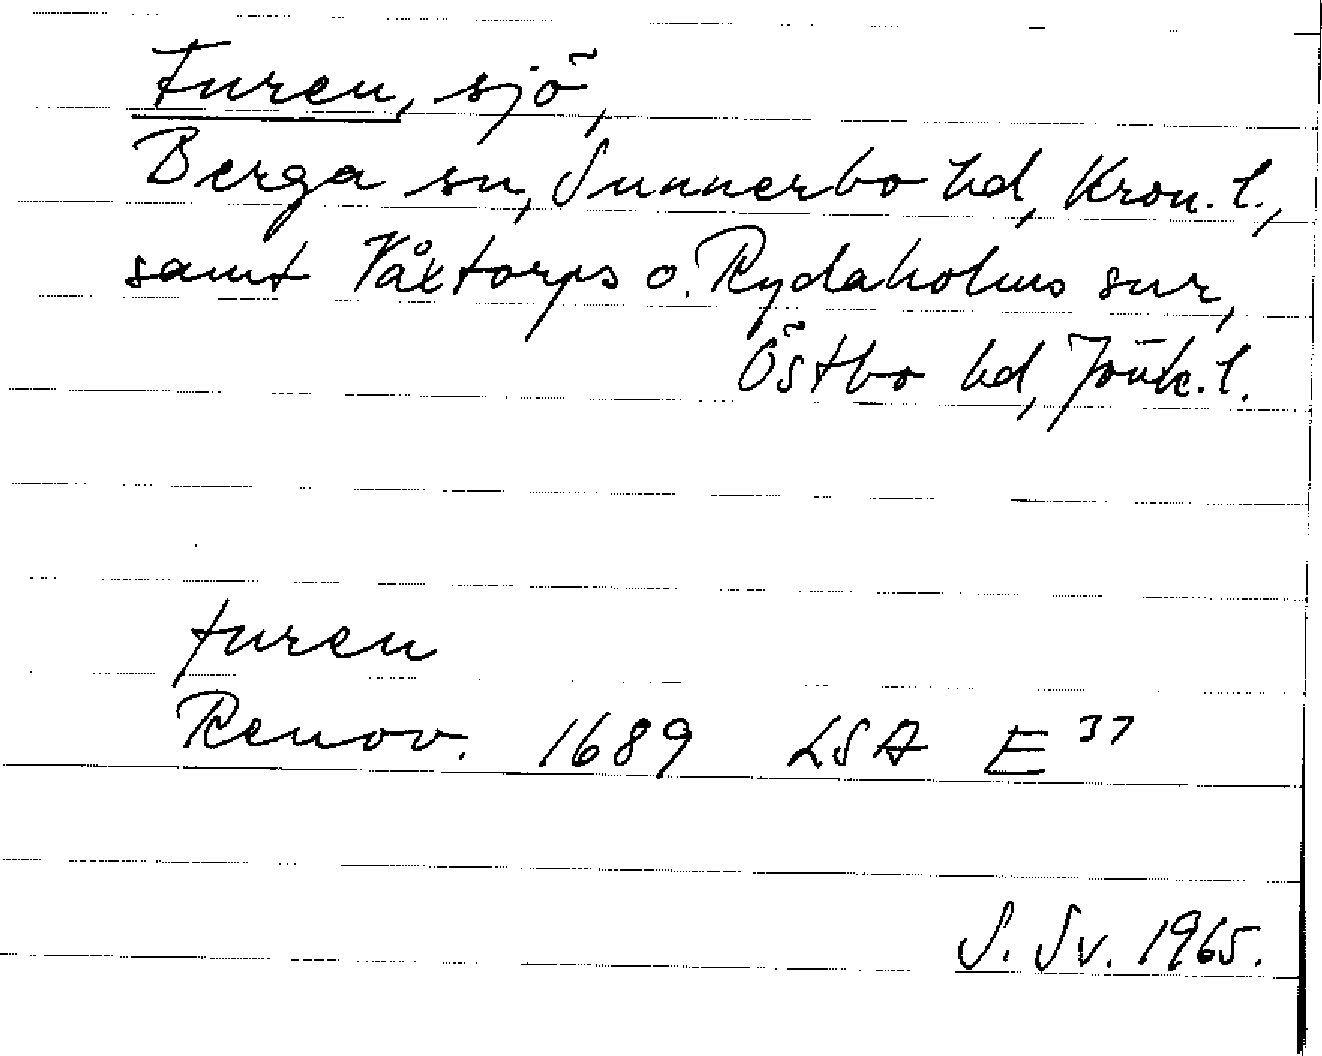 Furen, sjö,
Berga sn, Sunnerbo hd, Kron. l.,
samt Våxtorps o. Rydaholms snr,
Östbo hd, Jönk. l.
furen
Renov. 1689 LSA E 37
S. Sv. 1965.